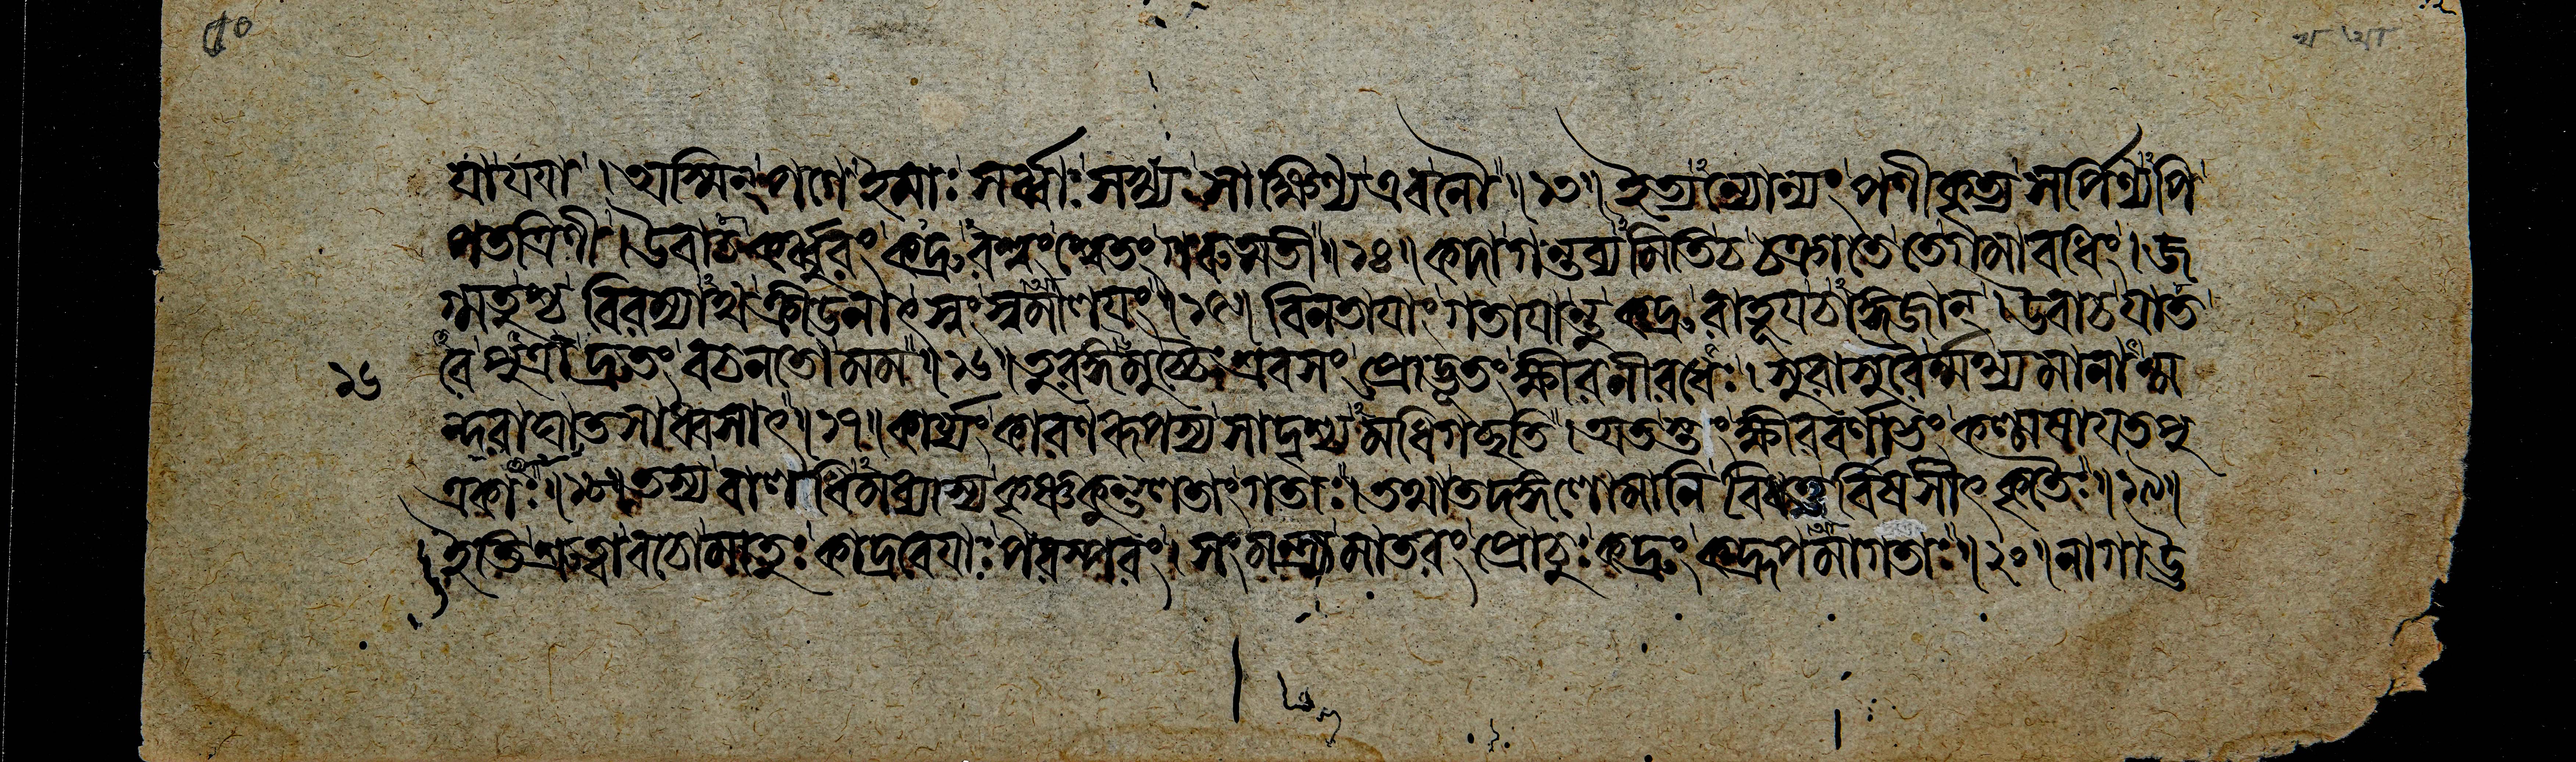 ৫০
যাযযা । অস্মিন্ পণে ইমাঃ সর্ব্বাঃ সখ্যঃ সাক্ষিণ্য এব নৌ ॥ ১৩ ॥ ইত্যন্যোন্যং পণীকৃত্য সর্পিণ্যপি
পতত্রিণী । উবাচ কর্ব্বুরং কদ্রূরশ্বং শ্বেতং গরুত্মতী ॥ ১৪ ॥ কদা গন্তব্যমিতি চ চক্রাতে তে গমাবধিং । জ
গ্মতুশ্চ বিরম্যাথ ক্রীডনাৎ স্বং স্বমালযং ॥ ১৫ ॥ বিনতাযাং গতাযান্তু কদ্রূরাহূয চাঙ্গজান্ । উবাচ যাত
বৈ পুত্রা দ্রুতং বচনতো মম ॥ ১৬ ॥ তুরঙ্গমুচ্চৈঃশ্রবসং প্রোদ্ভূতং ক্ষীরনীরধেঃ । সুরাসুরৈর্ম্মথ্যমানান্ম
১৬
ন্দরাঘাতসাধ্বসাৎ ॥ ১৭ ॥ কার্য্যং কারণরূপস্য সাদৃশ্যমধিগচ্ছতি । অতস্তং ক্ষীরবর্ণাভং কল্মাষাযত পু
ত্রকাঃ ॥ ১৮ ॥ তস্য বালধিমধ্যাস্য কৃষ্ণকুন্তলতাং গতাঃ । তথা তদঙ্গলোমানি বিধত্ত বিষসীৎকৃতৈঃ ॥ ১৯ ॥
ইতি শ্রুত্বা বচো মাতুঃ কাদ্রবেযাঃ পরস্পরং । সংমন্ত্র্য মাতরং প্রোচুঃ কদ্রূং কদ্রূপমাগতাঃ ॥ ২০ ॥ নাগা ঊ